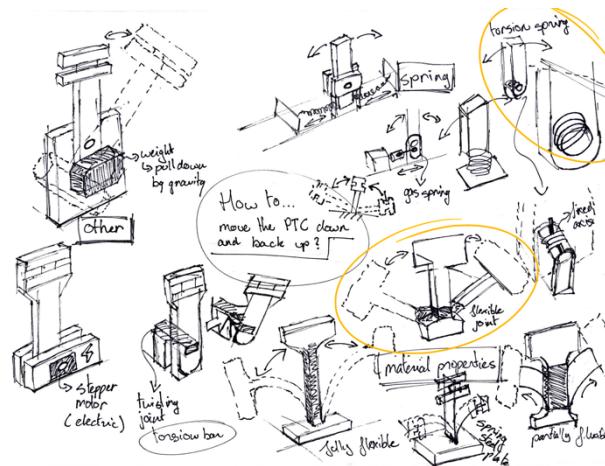 torsion spring
spring
weight
↳ pull down
by gravity
other
gas spring
How to...
move the PTC down
and back up?
fixed
axis
flexible
joint
stepper
motor
(electric)
twisting
joint
torsion bar
material properties
fully flexible
spring
steel
plate